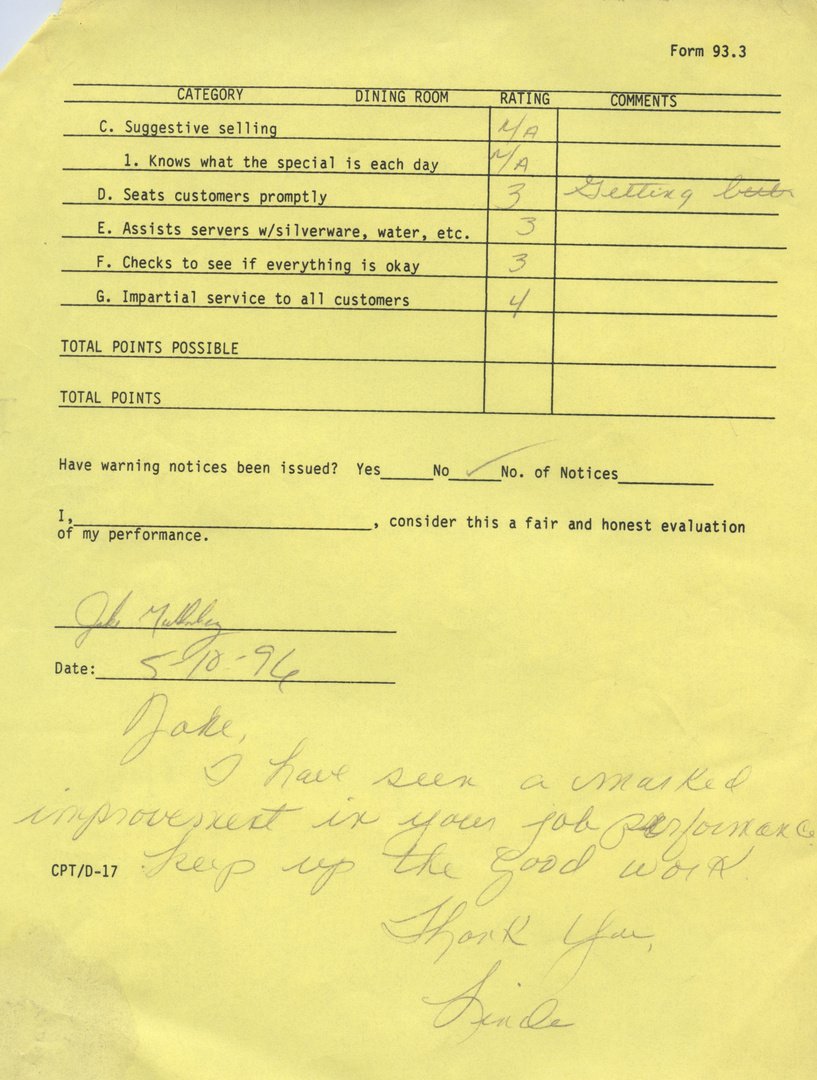 Form 93.3
CATEGORY DINING ROOM RATING COMMENTS
C. Suggestive selling N/A
1. Knows what the special is each day N/A
D. Seats customers promptly 3 Getting
E. Assists servers w/silverware, water, etc. 3
F. Checks to see if everything is okay 3
G. Impartial service to all customers 4
TOTAL POINTS POSSIBLE
TOTAL POINTS
Have warning notices been issued? Yes_____No__✓__No. of Notices_________
I,______________________________, consider this a fair and honest evaluation
of my performance.
Jake
Date: 5-10-96
Jake,
I have seen a marked
improvement in your job performance
CPT/D-17 keep up the good work.
Thank You,
Linda